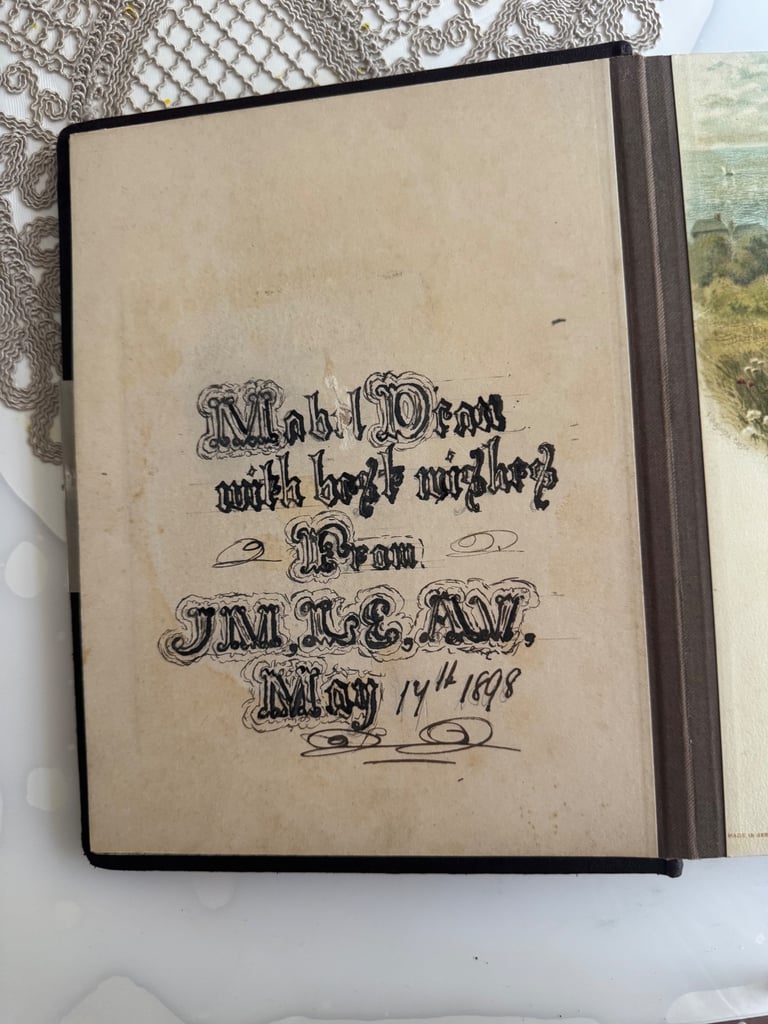 Mabel Dean
with best wishes
From
JM, LE, AW,
May 14th 1898
MADE IN